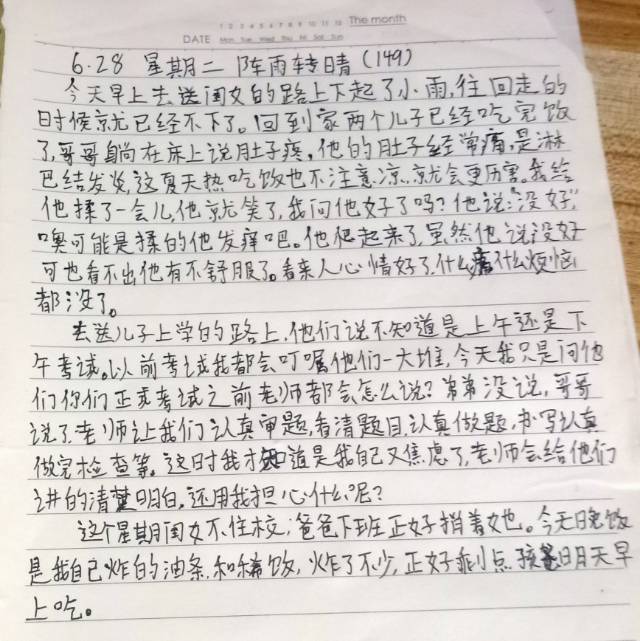 1 2 3 4 5 6 7 8 9 10 11 12 The month
DATE Mon Tue Wed Thu Fri Sat Sun
6·28 星期二 阵雨转晴(149)
今天早上去送闺女的路上下起了小雨,往回走的
时候就已经不下了。回到家两个儿子已经吃完饭
了,哥哥躺在床上说肚子疼,他的肚子经常痛,是淋
巴结发炎,这夏天热吃饭也不注意凉,就会更历害。我给
他揉了一会儿他就笑了,我问他好了吗?他说:"没好",
噢可能是揉的他发痒吧。他爬起来了,虽然他说没好
可也看不出他有不舒服了。看来人心情好了,什么痛什么烦恼
都没了。
去送儿子上学的路上,他们说不知道是上午还是下
午考试。以前考试我都会叮嘱他们一大堆,今天我只是问他
们你们正式考试之前老师都会怎么说?弟弟没说,哥哥
说了老师让我们认真审题,看清题目,认真做题,书写认真
做完检查等。这时我才知道是我自己又焦虑了,老师会给他们
讲的清楚明白,还用我担心什么呢?
这个星期闺女不住校,爸爸下班正好捎着她。今天晚饭
是我自己炸的油条,和稀饭,炸了不少,正好剩点孩明天早
上吃。